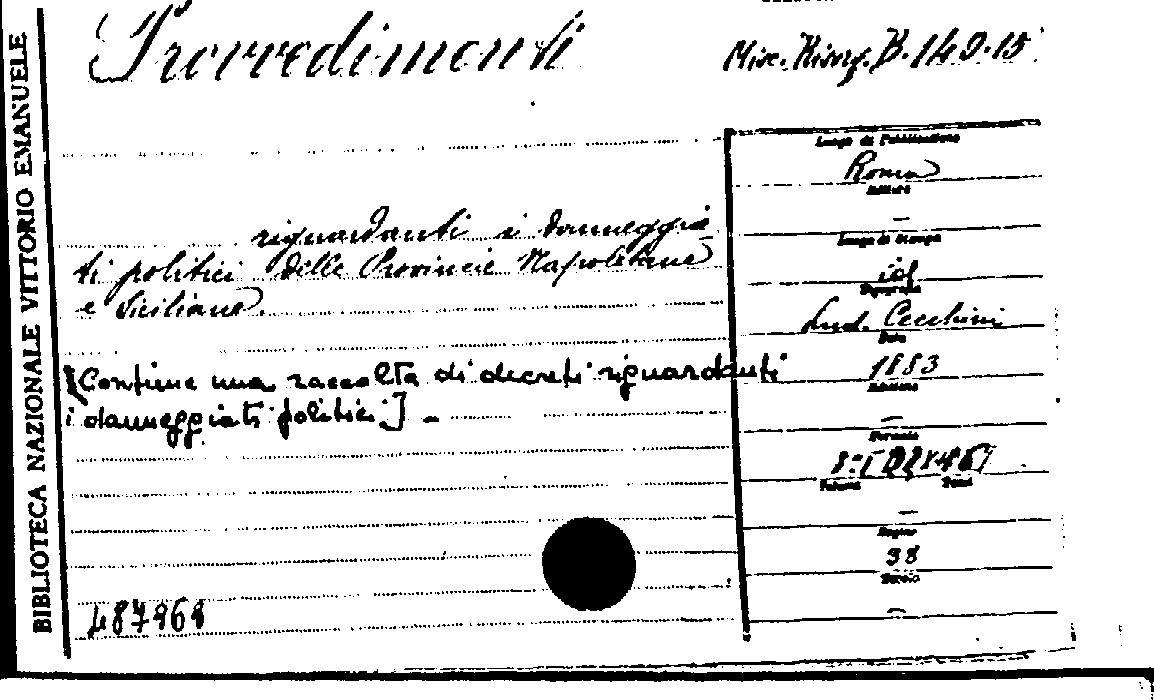 BIBLIOTECA NAZIONALE VITTORIO EMANUELE
Provvedimenti
Misc. Risorg. B. 149.15
riguardanti i danneggia
ti politici delle Provincie Napoletane
e Siciliane.
[Contiene una raccolta di decreti riguardanti
i danneggiati politici] -
487969
Luogo di Pubblicazione
Roma
Editore
—
Luogo di Stampa
id
Tipografia
Lud. Cecchini
Data
1883
Edizione
—
Formato
8º
Volumi Tomi
—
Pagine
38
Prezzo
—